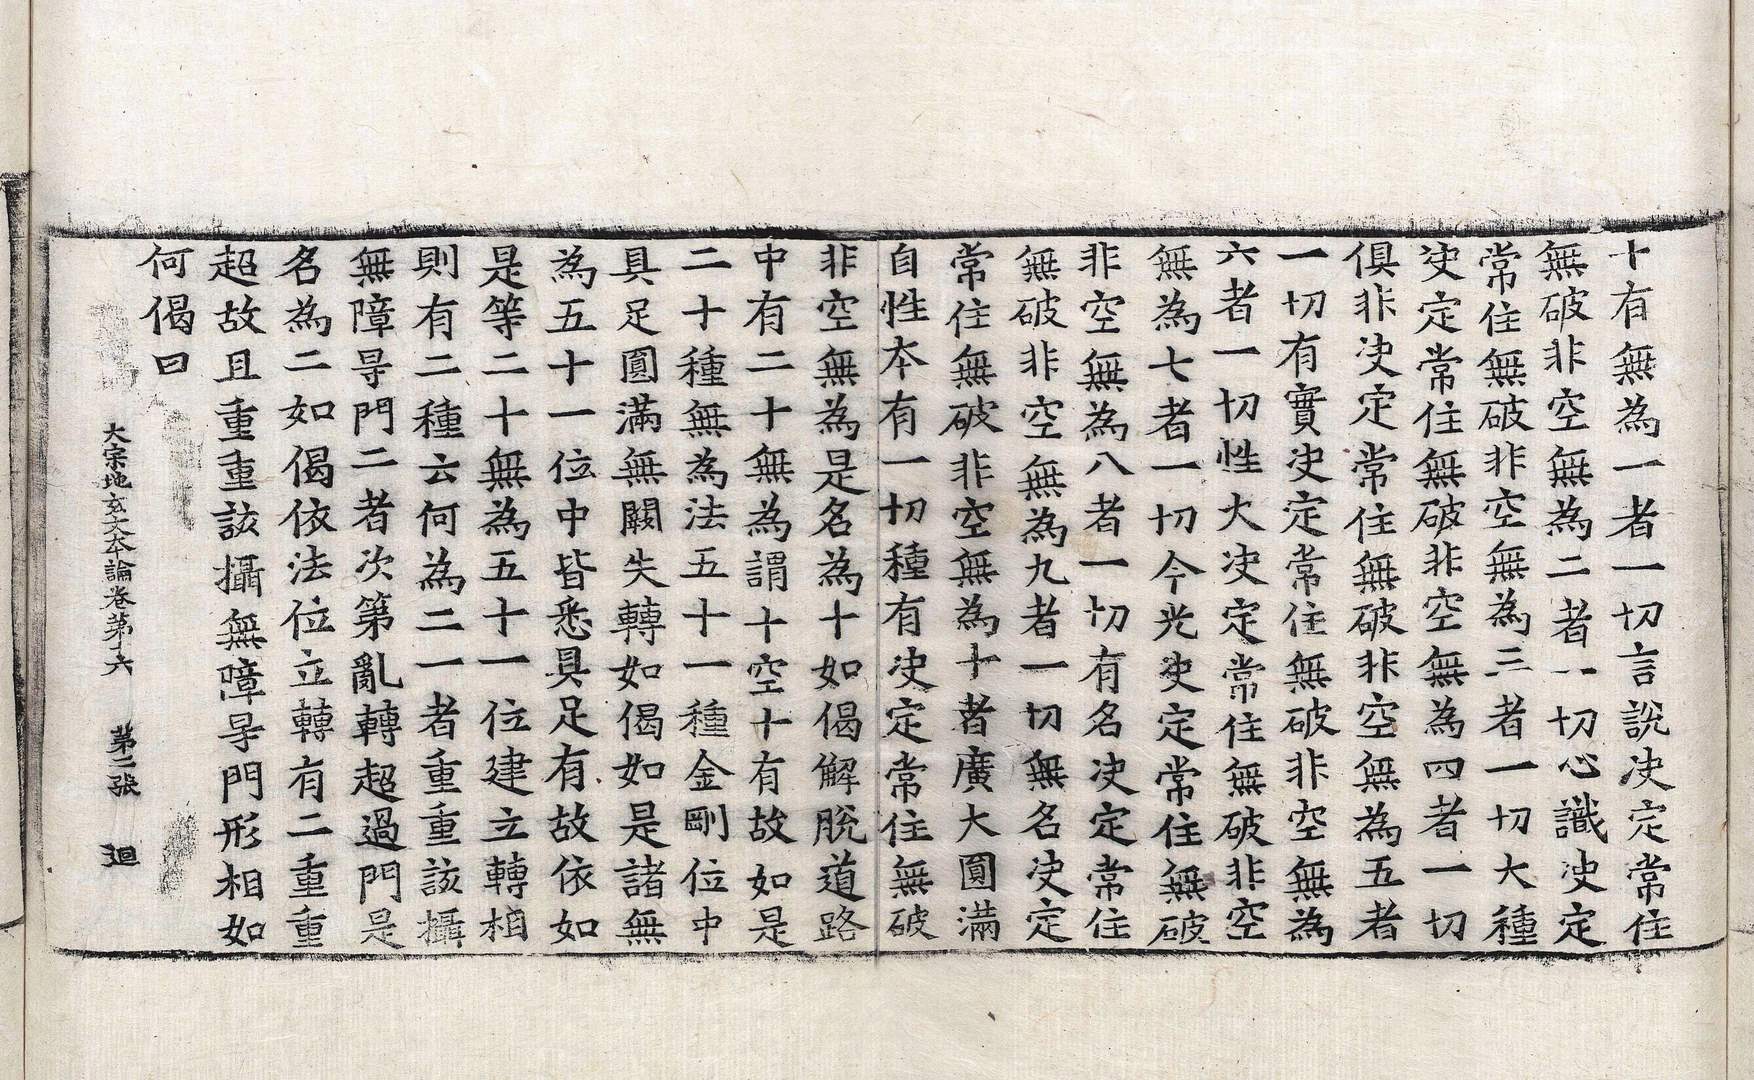 十有無為一者一切言說决定常住
無破非空無為二者一切心識决定
常住無破非空無為三者一切大種
决定常住無破非空無為四者一切
俱非决定常住無破非空無為五者
一切有實决定常住無破非空無為
六者一切性大决定常住無破非空
無為七者一切今光决定常住無破
非空無為八者一切有名决定常住
無破非空無為九者一切無名决定
常住無破非空無為十者廣大圓滿
自性本有一切種有决定常住無破
非空無為是名為十如偈解脫道路
中有二十無為謂十空十有故如是
二十種無為法五十一種金剛位中
具足圓滿無闕失轉如偈如是諸無
為五十一位中皆悉具足有故依如
是等二十無為五十一位建立轉相
則有二種云何為二一者重重該攝
無障㝵門二者次第亂轉超過門是
名為二如偈依法位立轉有二重重
超故且重重該攝無障㝵門形相如
何偈曰
大宗地玄文本論卷第十六 第二張 迴